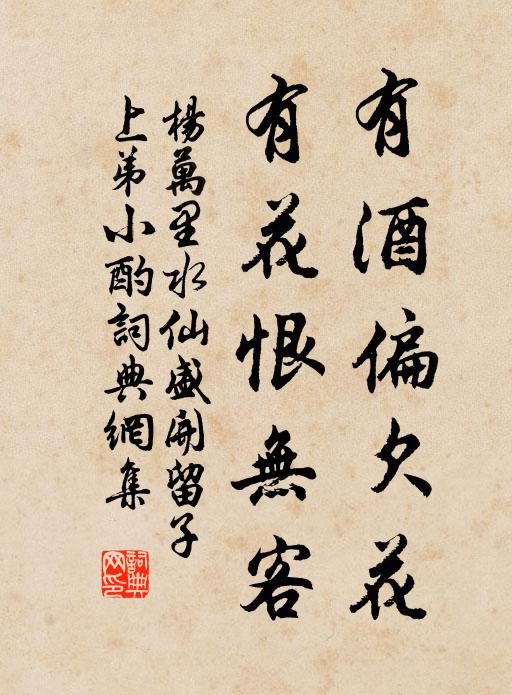 有酒偏欠花
有花恨無客
楊萬里水仙盛開留子
上弟小酌詞典網集
詞典網印